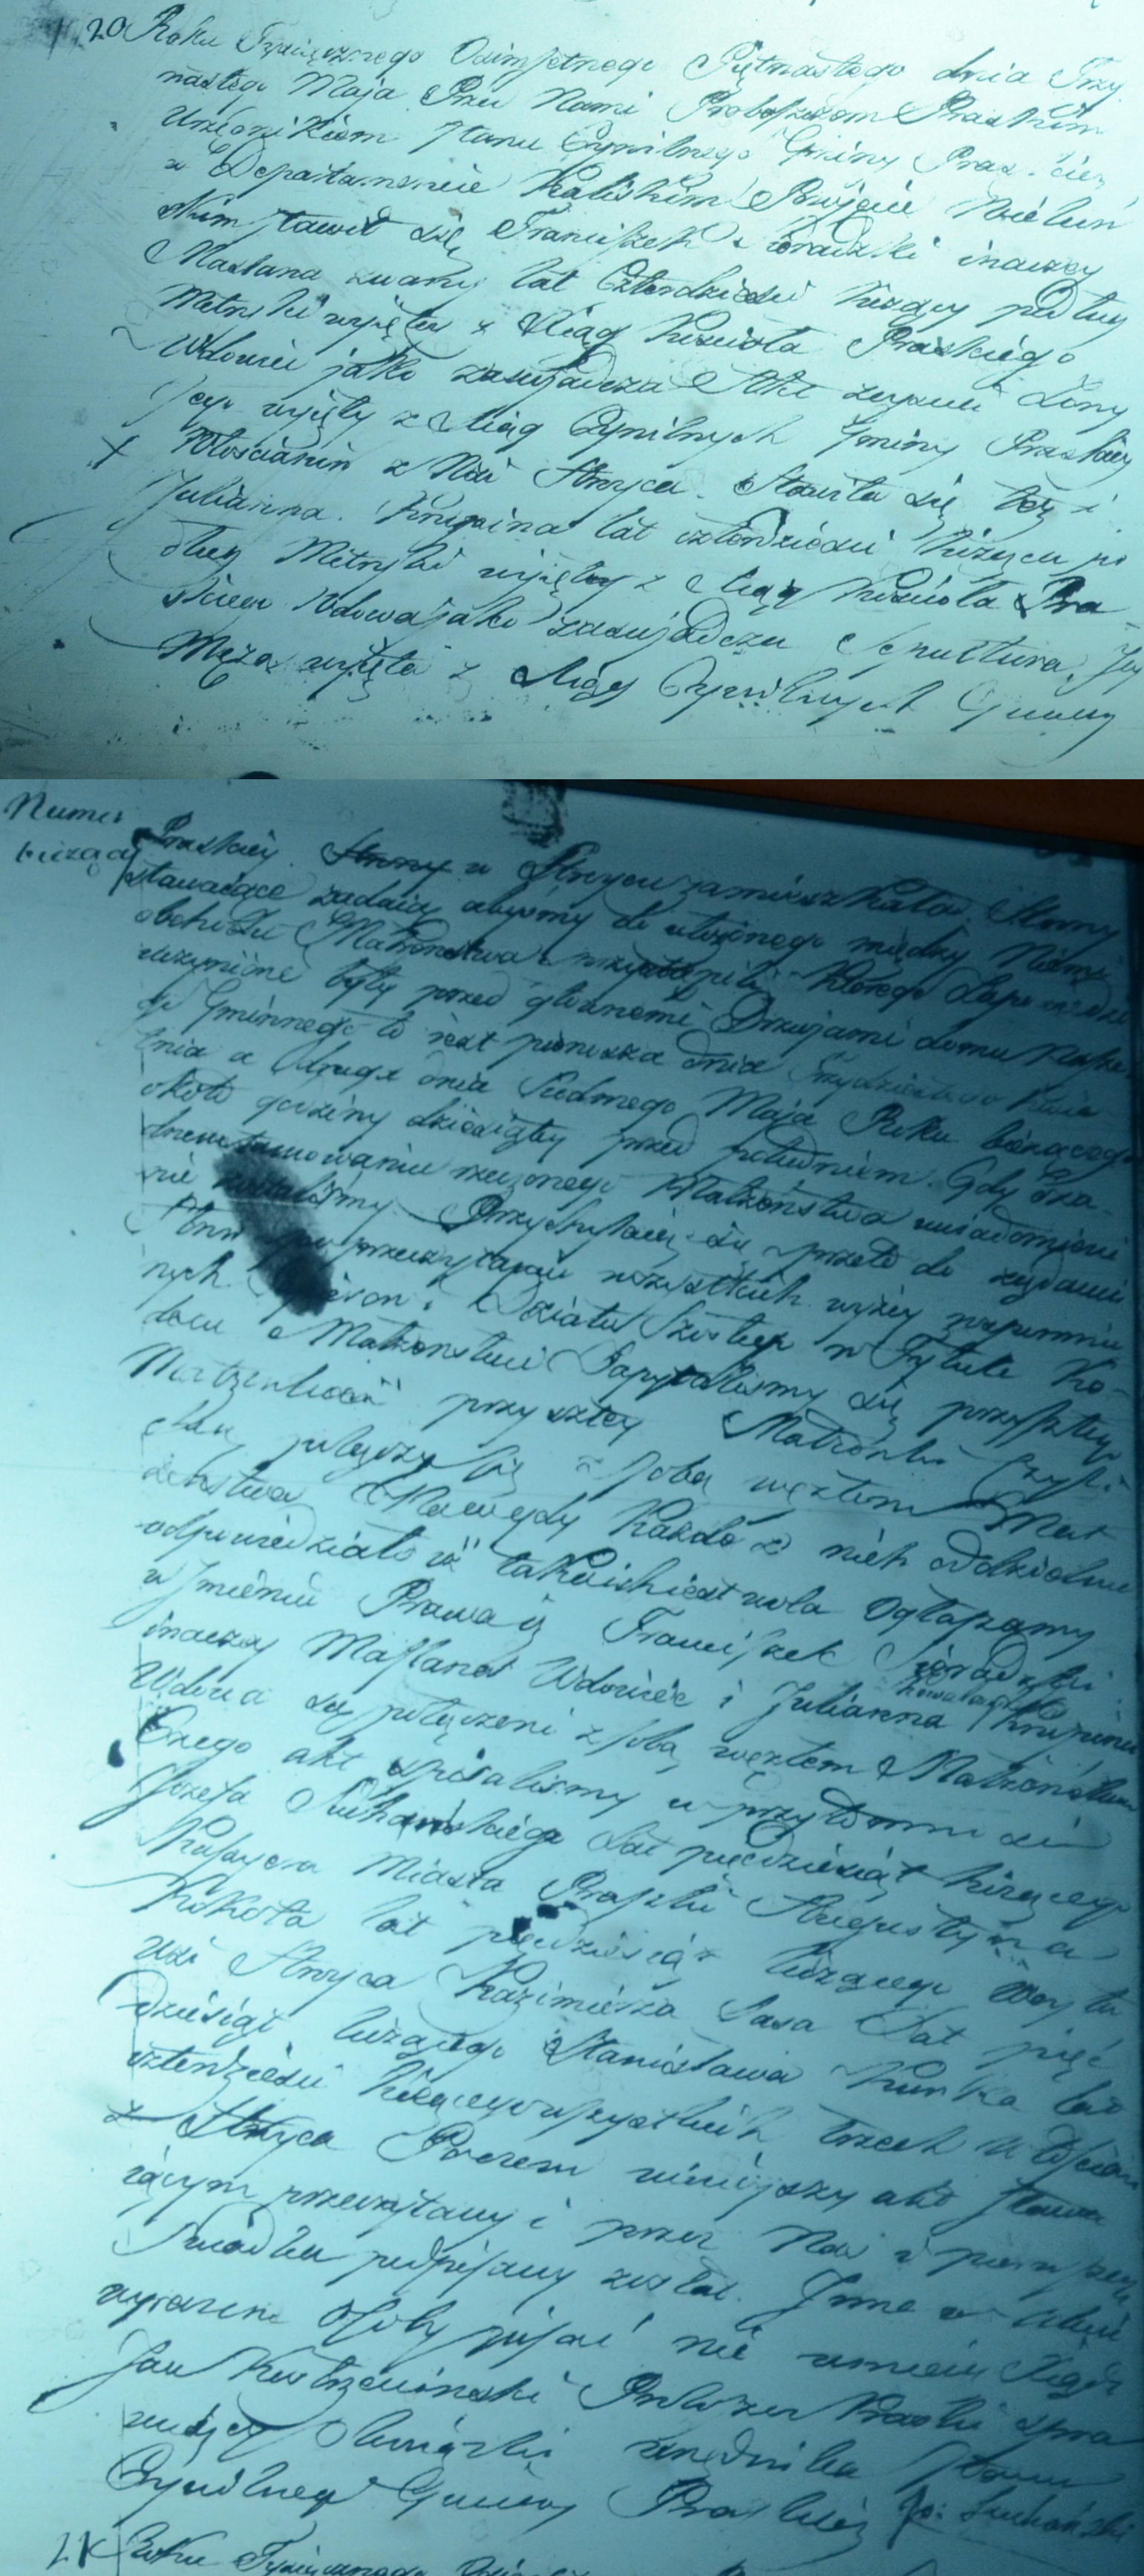 20 Roku Tysiącznego Osimsetnego Piętnastego dnia Trzy
nastego Maja Przed Nami Proboszczem Praskim
Urzędnikiem Stanu Cywilnego Gminy Pras
w Departamencie Kaliskim Powiecie Wieluń
skim stawił się Franciszek Sieradzki inaczey
Maslana zwany lat Czterdzieści liczący podług
Metryki wyjętey z Xiąg Kościoła Praskiego
Wdowiec jako zaswiadcza Akt zeyscia Żony
jego wyjęty z Xiąg Cywilnych Gminy Praskiey
Włościanin z Wsi Stroyca. Stawiła się też i
Julianna Krupina lat czterdzieści licząca po
dług Metryki wyjętey z Xiąg Kościoła Pra-
Wdowa jako zaswiadcza Sepultura Jey
Męża wyjęta z Xiąg Cywilnych Gminy
Numer
bieżący
Praskiey. Strony w Stroycu zamieszkała. Strony
stawaiące żądaią abysmy do ułożonego między Niemi
obchodu Małżenstwa przystąpili którego Zapowiedzi
uczynione były przed głownemi Drzwiami domu
go Gminnego to iest pierwsza dnia Trzydziestego Kwie
tnia a druga dnia Siodmego Maja Roku bieżącego
około godziny dziesiątey przed południem. Gdy żad
o tamowaniu rzeczonego Małżeństwa uwiadomieni
nie zostalismy. Przychylaiąc się przeto do żądania
Stron po przeczytaniu wszystkich wyżey wspomnio
nych i Działu Szóstego w Tytule Ko-
dexu o Małżenstwie Zapytalismy się przyszłego
Małżonka i przyszłey Małżonki Czyli
chcą połączyć się z sobą węzłem Mał
żeństwa Na co gdy każde z nich oddzielnie
odpowiedziało iż taka ich iest wola Ogłaszamy
w Jmieniu Prawa iż Franciszek Sieradzki
inaczey Maslana Wdowiec i Julianna Krupina
Wdowa są połączeni z sobą węzłem Małżeństwa
Czego akt spisalismy w przytomnosci
Jozefa Suchańskiego Lat pięcdziesiąt liczącego
Kassyera Miasta Praszki Augustyna
Kokota lat pięćdziesiąt liczącego Woyta
wsi Stroyca Kazimierza Sasa Lat pięć
dziesiąt liczącego Stanisława Kurka lat
czterdzieści liczącego wszystkich trzech Włoscian
z Stroyca Poczem ninieyszy akt Stawa
iącym przeczytany i przez Nas i pierwszego
Swiadka podpisany został. Jnne w akcie
wyrażone Osoby pisać nie umieią Xiądz
Jan Proboszcz Praski spra
wuiący Obowiązki urzędnika Stanu
Cywilnego Gminy Praskiey Jo: Suchański
21 Roku Tysiącznego